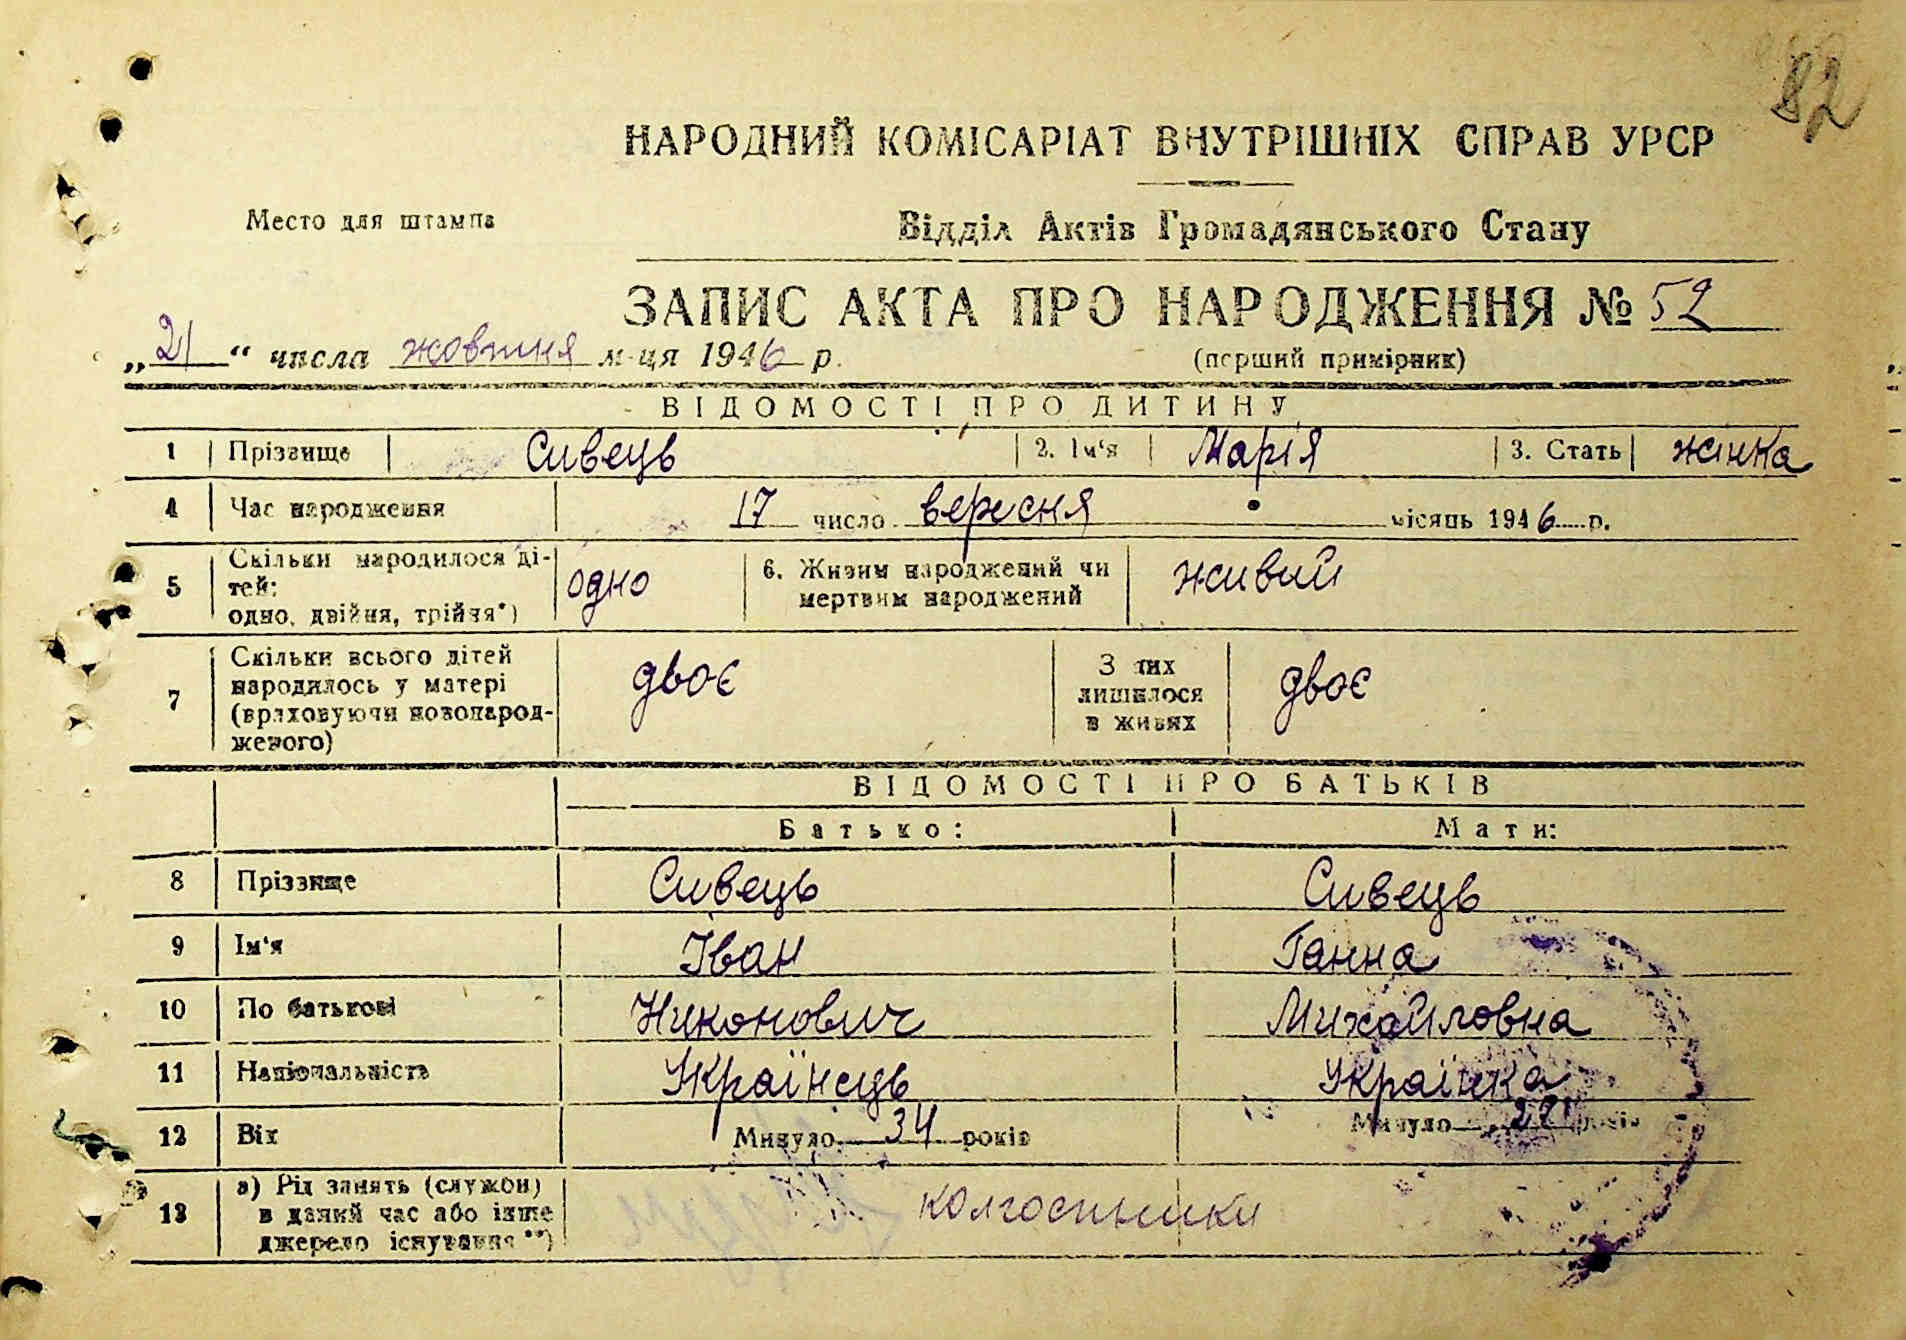 82
НАРОДНИЙ КОМІСАРІАТ ВНУТРІШНІХ СПРАВ УРСР
Место для штампа
Відділ Актів Громадянського Стану
ЗАПИС АКТА ПРО НАРОДЖЕННЯ № 52
„21“ числа жовтня м-ця 1946 р.
(перший примірник)
ВІДОМОСТІ ПРО ДИТИНУ
1 Прізвище Сивець 2. Ім‘я Марія 3. Стать жінка
4 Час народження 17 число вересня місяць 1946 р.
5 Скільки народилося дітей: одно, двійня, трійня*) одно 6. Живим народжений чи мертвим народжений живий
7 Скільки всього дітей народилось у матері (враховуючи новонародженого) двоє З них лишилося в живих двоє
ВІДОМОСТІ ПРО БАТЬКІВ
Батько: Мати:
8 Прізвище Сивець Сивець
9 Ім‘я Іван Ганна
10 По батькові Никонович Михайловна
11 Національність Українець Українка
12 Вік Минуло 34 років Минуло 27 років
13 а) Рід занять (служби) в даний час або інше джерело існування**) колгоспники